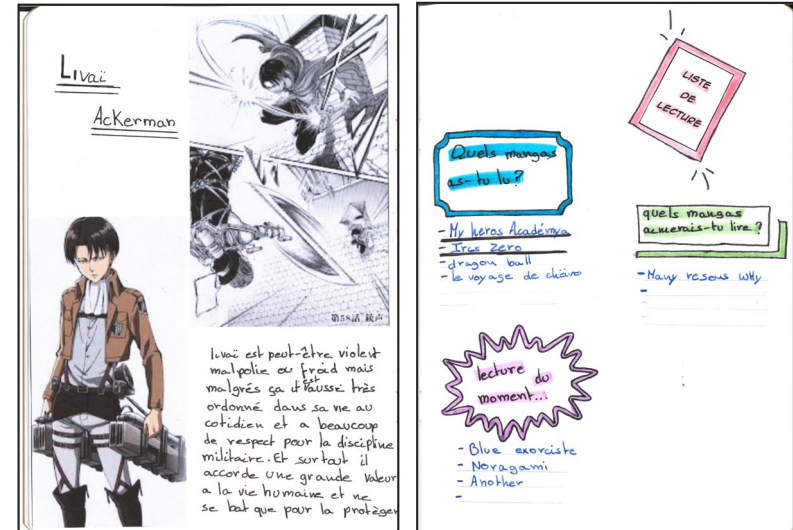 Livaï
Ackerman
第58話 銃声
livaï est peut-être violent
malpolie ou froid mais
malgrés ça il est aussi très
ordonné dans sa vie au
cotidien et a beaucoup
de respect pour la discipline
militaire. Et surtout il
accorde une grande valeur
a la vie humaine et ne
se bat que pour la protéger
LISTE
DE
LECTURE
Quels mangas
as-tu lu?
- My heros Académya
- Zero
- dragon ball
- le voyage de
quels mangas
aimerais-tu lire?
- Many resons Why
-
lecture du
moment...!
- Blue exorciste
- Noragami
- Another
-